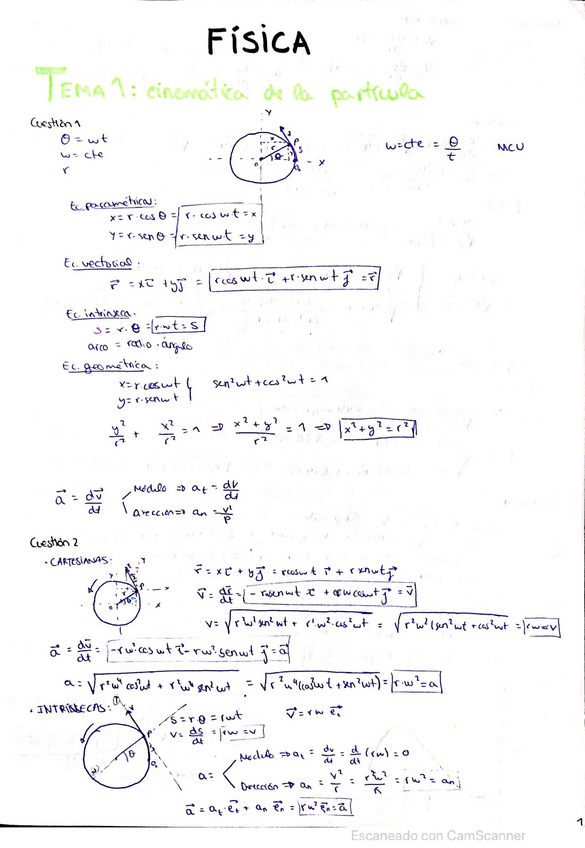 FÍSICA
TEMA 1: cinemática de la partícula
Cuestión 1
θ = wt
w = cte
r
w=cte = θ/t MCU
Ec. paramétricas:
x = r · cos θ = r · cos wt = x
y = r · sen θ = r · sen wt = y
Ec. vectorial:
r⃗ = xi⃗ + yj⃗ = r cos wt · i⃗ + r · sen wt j⃗ = r⃗
Ec. intrínseca:
s = r · θ = r · wt = s
arco = radio · ángulo
Ec. geométrica:
x = r cos wt
y = r · sen wt
sen² wt + cos² wt = 1
y²/r² + x²/r² = 1 ⇒ (x² + y²)/r² = 1 ⇒ x² + y² = r²
a⃗ = dv⃗/dt
Módulo ⇒ at = dv/dt
Dirección ⇒ an = v²/ρ
Cuestión 2
· CARTESIANAS:
r⃗ = xi⃗ + yj⃗ = r cos wt i⃗ + r sen wt j⃗
v⃗ = dr⃗/dt = -r w sen wt i⃗ + r w cos wt j⃗ = v⃗
v = √(r² w² sen² wt + r² w² · cos² wt) = √(r² w² (sen² wt + cos² wt)) = rw = v
a⃗ = dv⃗/dt = -rw² cos wt i⃗ - rw² · sen wt j⃗ = a⃗
a = √(r² w⁴ cos² wt + r² w⁴ sen² wt) = √(r² w⁴ (cos² wt + sen² wt)) = r · w² = a
· INTRÍNSECAS:
s = r θ = r wt
v⃗ = rw e⃗t
v = ds/dt = rw = v
a =
Módulo ⇒ at = dv/dt = d/dt (rw) = 0
Dirección ⇒ an = v²/r = r²w²/r = rw² = an
a⃗ = at · e⃗t + an e⃗n = rw² e⃗n = a⃗
Escaneado con CamScanner
1